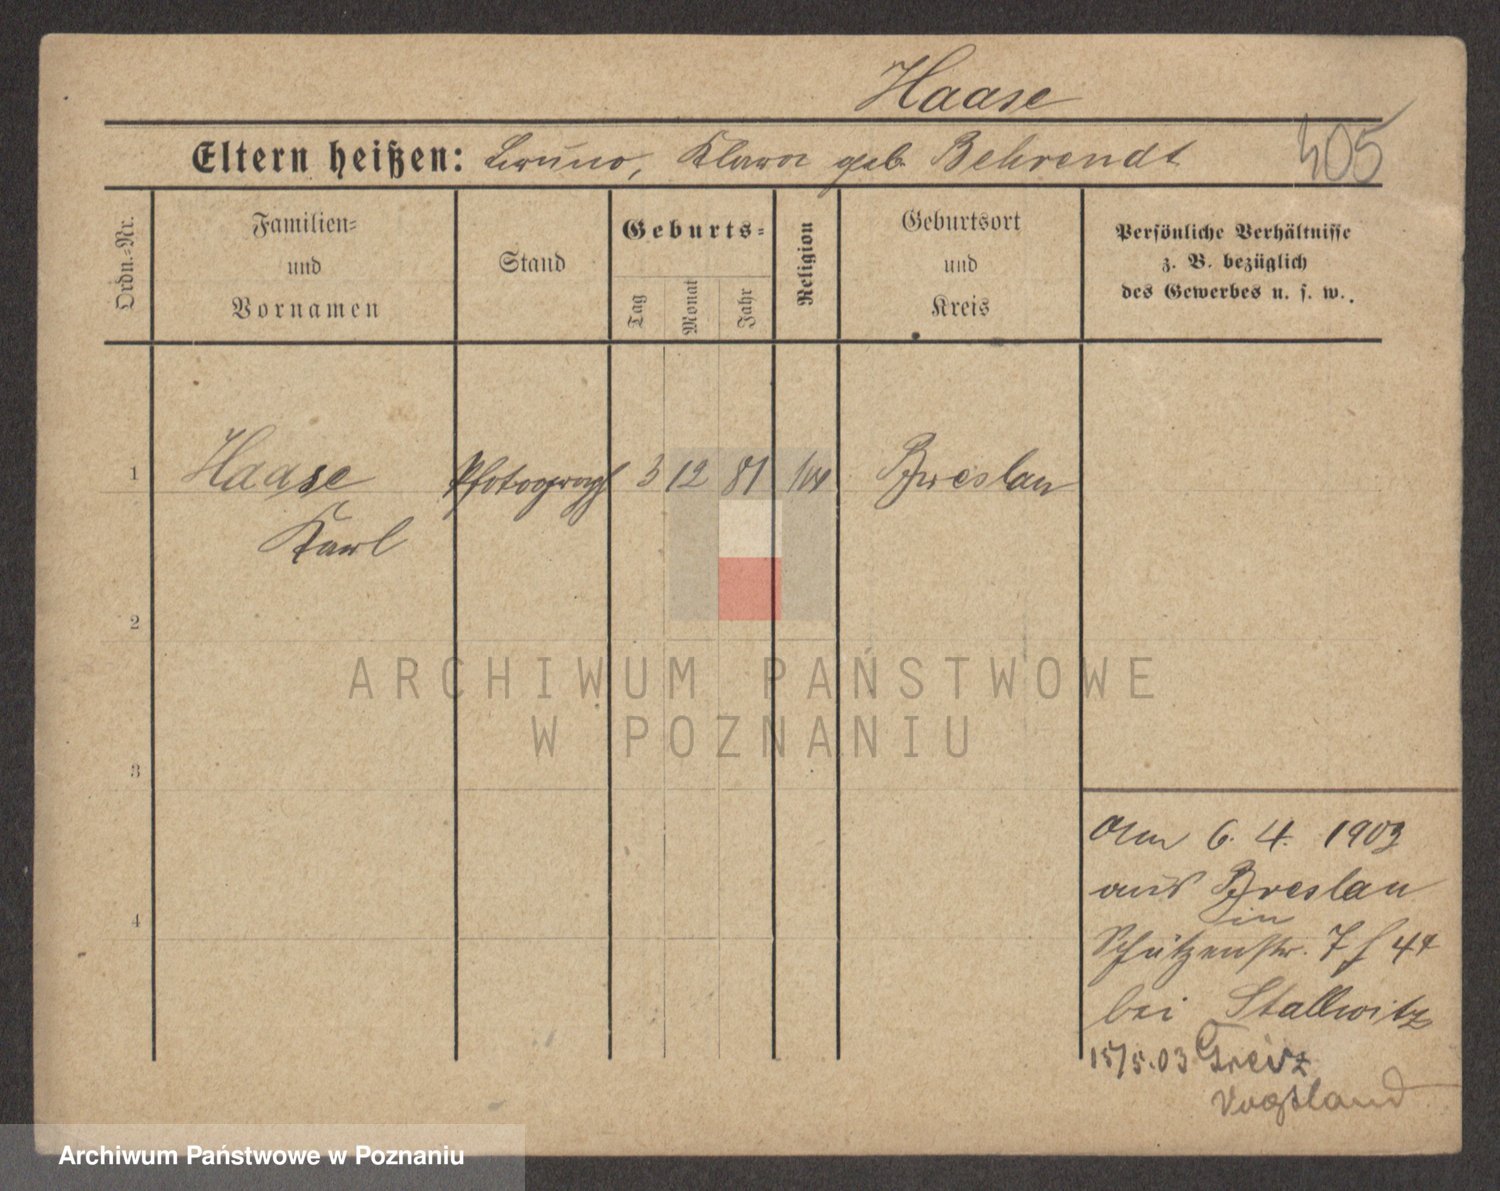 Haase
405
Eltern heißen: Bruno, Klara geb. Behrendt
Ordn.-Nr.
Familien-
und
Vornamen
Stand
Geburts-
Tag
Monat
Jahr
Religion
Geburtsort
und
Kreis
Persönliche Verhältnisse
z. B. bezüglich
des Gewerbes u. s. w.
1
Haase
Karl
Photograph
3 12 81
Breslau
2
3
4
Am 6. 4. 1903
aus Breslau
in
Schützenstr. 7
bei Stallwitz
15/5.03 Greiz
Vogtland
ARCHIWUM PAŃSTWOWE
W POZNANIU
Archiwum Państwowe w Poznaniu